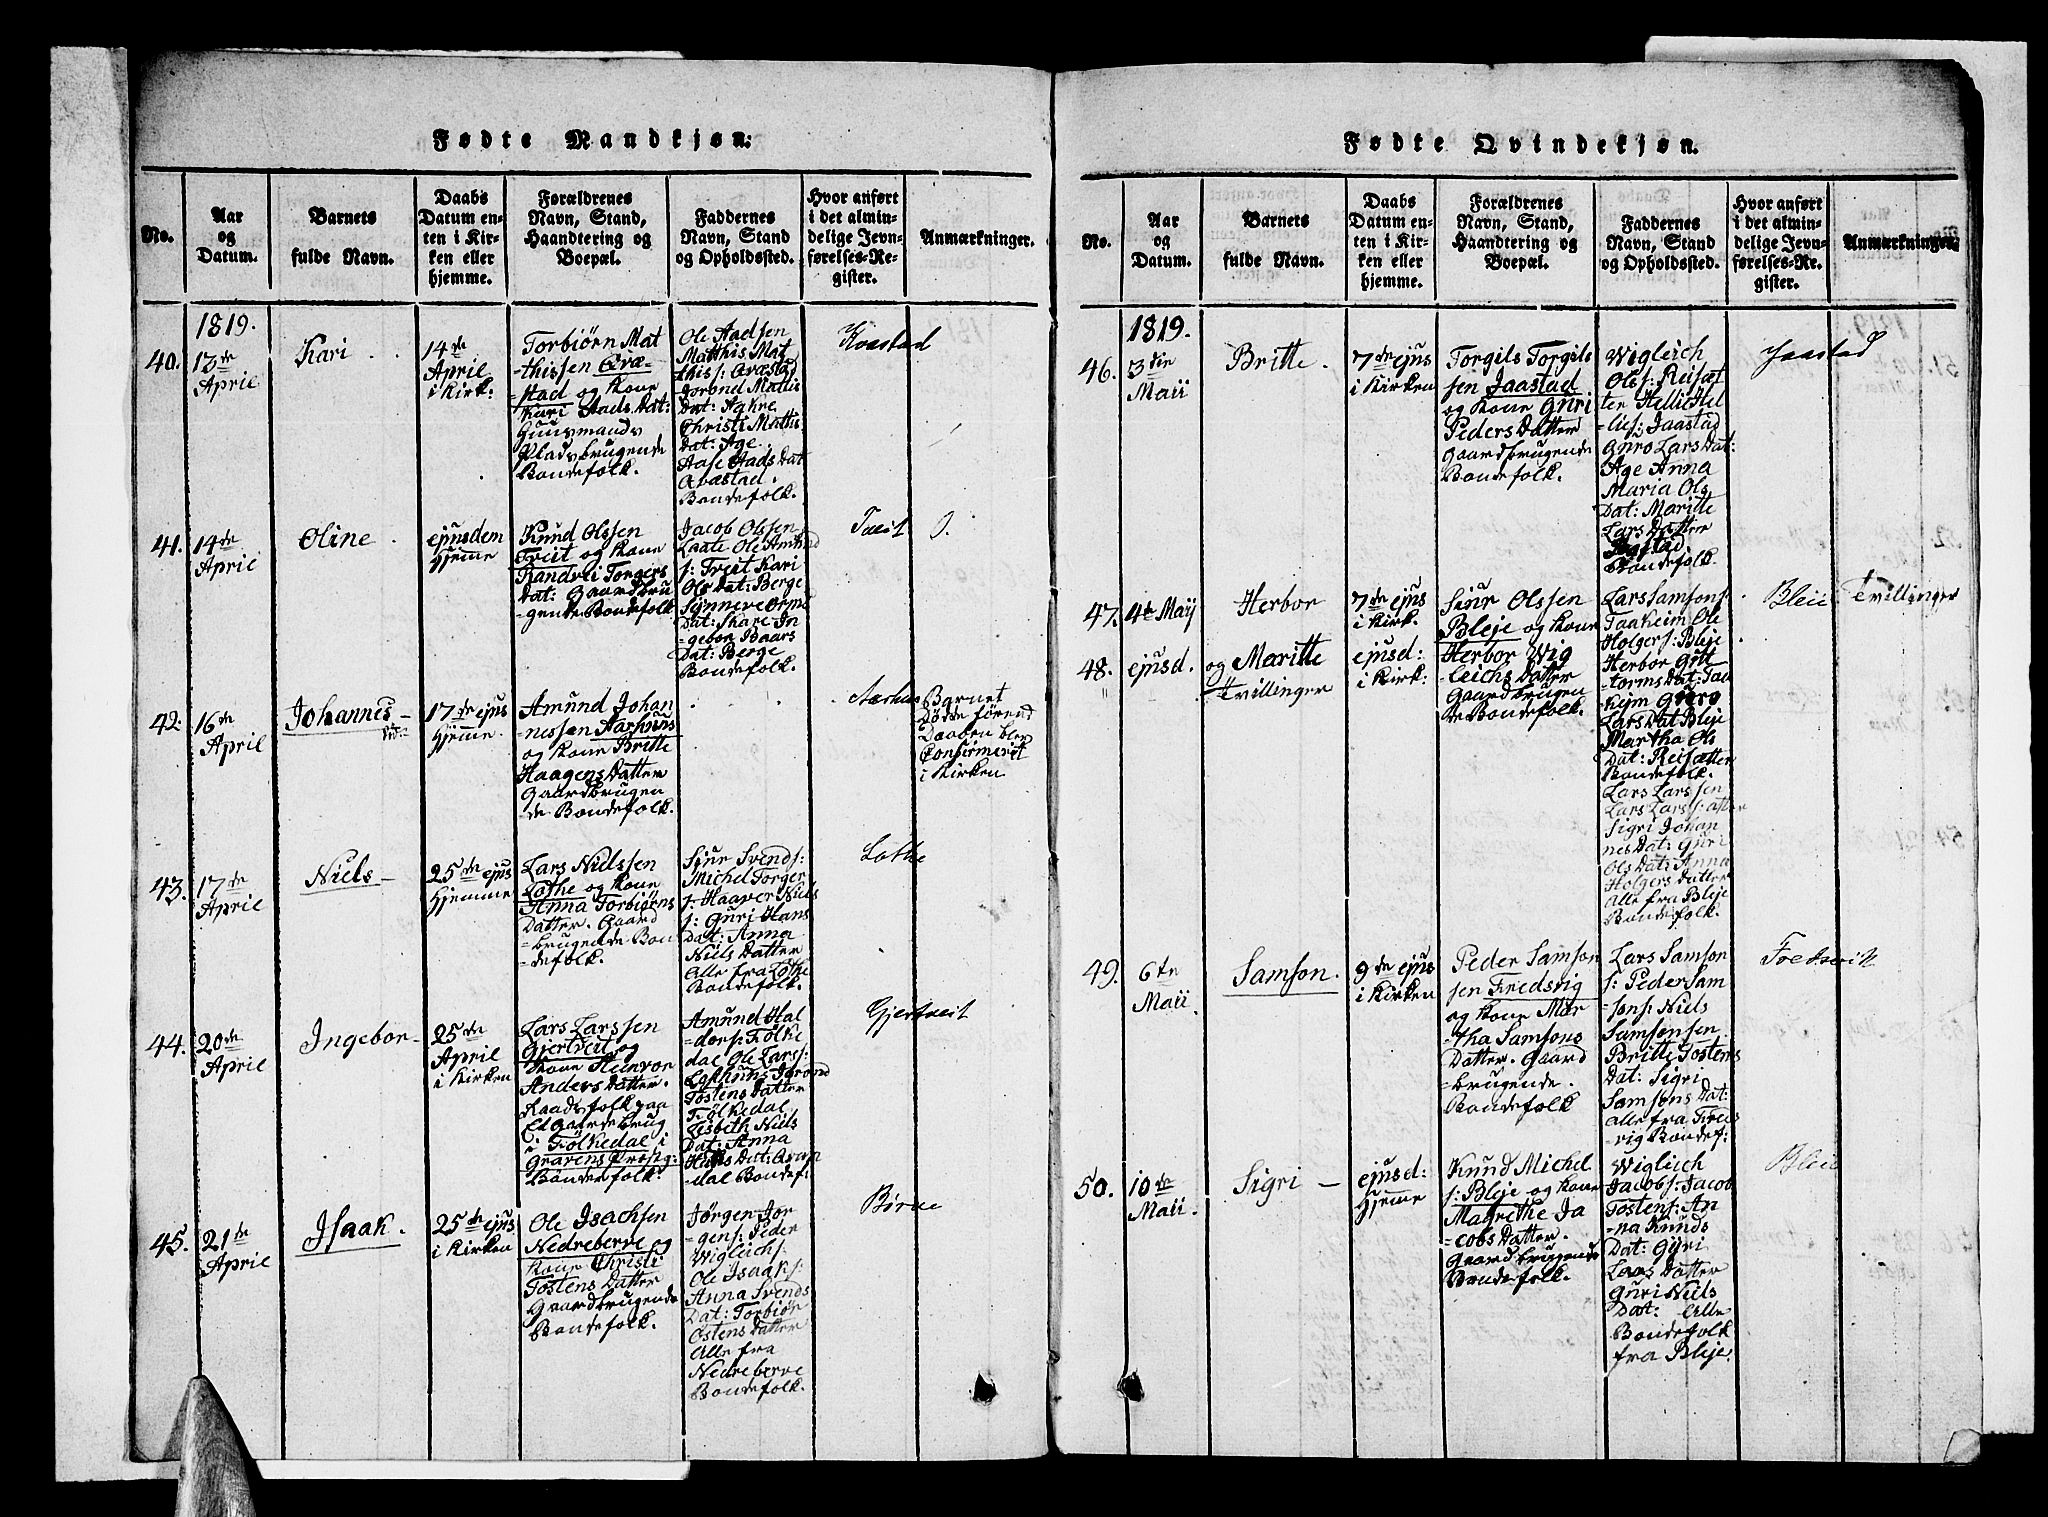 Fødte Mandkjøn:
No.
Aar og Datum.
Barnets fulde Navn.
Daabs Datum enten i Kirken eller hjemme.
Forældrenes Navn, Stand, Haandtering og Boepæl.
Faddernes Navn, Stand og Opholdssted.
Hvor anført i det almindelige Jevnførelses-Register.
Anmærkninger.
1819.
40.
13de
April
Kari
14de
April
i Kirk:
Torbiørn Mat
-thissen Qvæ-
stad og Kone
Kari Aads Dat:
Huusmands
Pladsbrugende
Bondefolk.
Ole Aadsen
Matthis Mat
this s: Qvæstad
Mattis
Dat: Aghre
Christi Mattis
Dat: Age
Aase Aads Dat
Qvæstad.
Bondefolk.
Kvæstad
41.
14de
April
Oline
ejusdem
Hjemme
Knud Olssen
Treit og Kone
Randvei Torgers
Dat: Gaardbru
gende Bondefolk
Jacob Olssen
Laate Ole Amund
s: Treit Kari
Ols Dat: Berge
Synneve Orms
Dat: Share In
-gebor Baars
Dat: Berge
Bondefolk.
Tveit
42.
16de
April
Johannes-
17de ejus
Hjemme.
Amund Johan
-nessen Aarhuus
og Kone Britte
Haagens Datter
Gaardbrugen
-de Bondefolk.
Aarhus
Barnet
Døde förend
Daaben blev
Confirmerit
i Kirken
43.
17de
April
Niels-
25de ejus
Hjemme
Lars Nielssen
Lothe og Kone
Anna Torbiørns
Datter. Gaard
-brugende Bon
-defolk.
Sjur Svends:
Michel Torger
s: Haaver Niels
s: Guri Hans
Dat: Anna
Niels Datter
Alle fra Lothe
Bondefolk.
Lothe
44.
20de
April
Ingebor-
25de
April
i Kirken
Lars Larssen
Gjertveit og
Kone
Anders Datter.
Raadsfolk paa
Et Gaardebrug
i Folkedal i
Gravens Præstg:
Bondefolk.
Amund Hal
-dors: Folke
dal Ole Lars s:
Lofthuus
Tostens Datter
Folkedal
Lisbith Niels
Dat: Anna
Dat:
dal Bondef:
Gjertveit
45.
21de
April
Isaak.
25de ejus
i Kirken
Ole Isachsen
Nedreberve og
Kone Christi
Tostens Datter
Gaardbrugende
Bondefolk.
Jørgen Jor
-gens: Peder
Wiglichs:
Ole Isaaks:
Anna Svends
Dat: Torbiør
Ostens Datter
Alle fra
Nedreberve
Bondefolk.
Børve
Fødte Qvindekjøn.
No.
Aar og Datum.
Barnets fulde Navn.
Daabs Datum enten i Kirken eller hjemme.
Forældrenes Navn, Stand, Haandtering og Boepæl.
Faddernes Navn, Stand og Opholdssted.
Hvor anført i det almindelige Jevnførelses-Register.
Anmærkninger.
1819.
46.
3die
Maii
Britte.
7de ejus
i Kirken
Torgils Torgils
sen Jaastad
og Kone Guri
Peders Datter
Gaardbrugende
Bondefolk.
Wigleich
Ols s: Reisæt
ter Hellic Hel
-lics: Jaastad
Guro Lars Dat:
Age Anna
Maria Ols
Dat: Maritte
Lars Datter
Bondefolk.
Jaastad
47.
4de Maij
Herbor
7de ejus
i Kirk.
Siur Olssen
Bleje og Kone
Herbor Wig
-leichs Datter
Gaardbrugen
de Bondefolk.
Lars Samsons.
Taaheim Ole
Holgers: Bleje
Herbor Gutt
-torms Dat: Taa
heim Guro
Lars Dat Bleje
Martha Ols
Dat: Reisætter
Bondefolk.
Bleii
Tvillinger
48.
ejusd.
og Maritte
Tvillinger
ejusd:
i Kirk:
Lars Larssen
Lars Lars s:
Sigri Johan
nes Dat: Guri
Ols Dat: Anna
Holgers Datter
Alle fra Bleje
Bondefolk.
49.
6te
Maii
Samson.
9de ejus
i Kirken
Peder Samson
sen Fredsvig
og Kone Mar
-tha Samsons
Datter. Gaard
-brugende.
Bondefolk
Lars Samson
s: Peder Sam
-sons: Niels
Samsonsen
Britte Tostens
Dat: Sigri
Samsons Dat:
Alle fra Freds
-vig Bondef:
Fredsvik
50.
10de
Maii.
Sigri -
ejusd:
Hjemme
Knud Michel
s: Bleje og Kone
Magrethe Ja
-cobs Datter.
Gaardbruggende
Bondefolk.
Wigleich
Jacobs: Jacob
Tostens: An
-na Knuds
Dat: Gyri
Lars Datter
Guri Niels
Dat: Alle
Bondefolk
fra Bleje.
Bleie